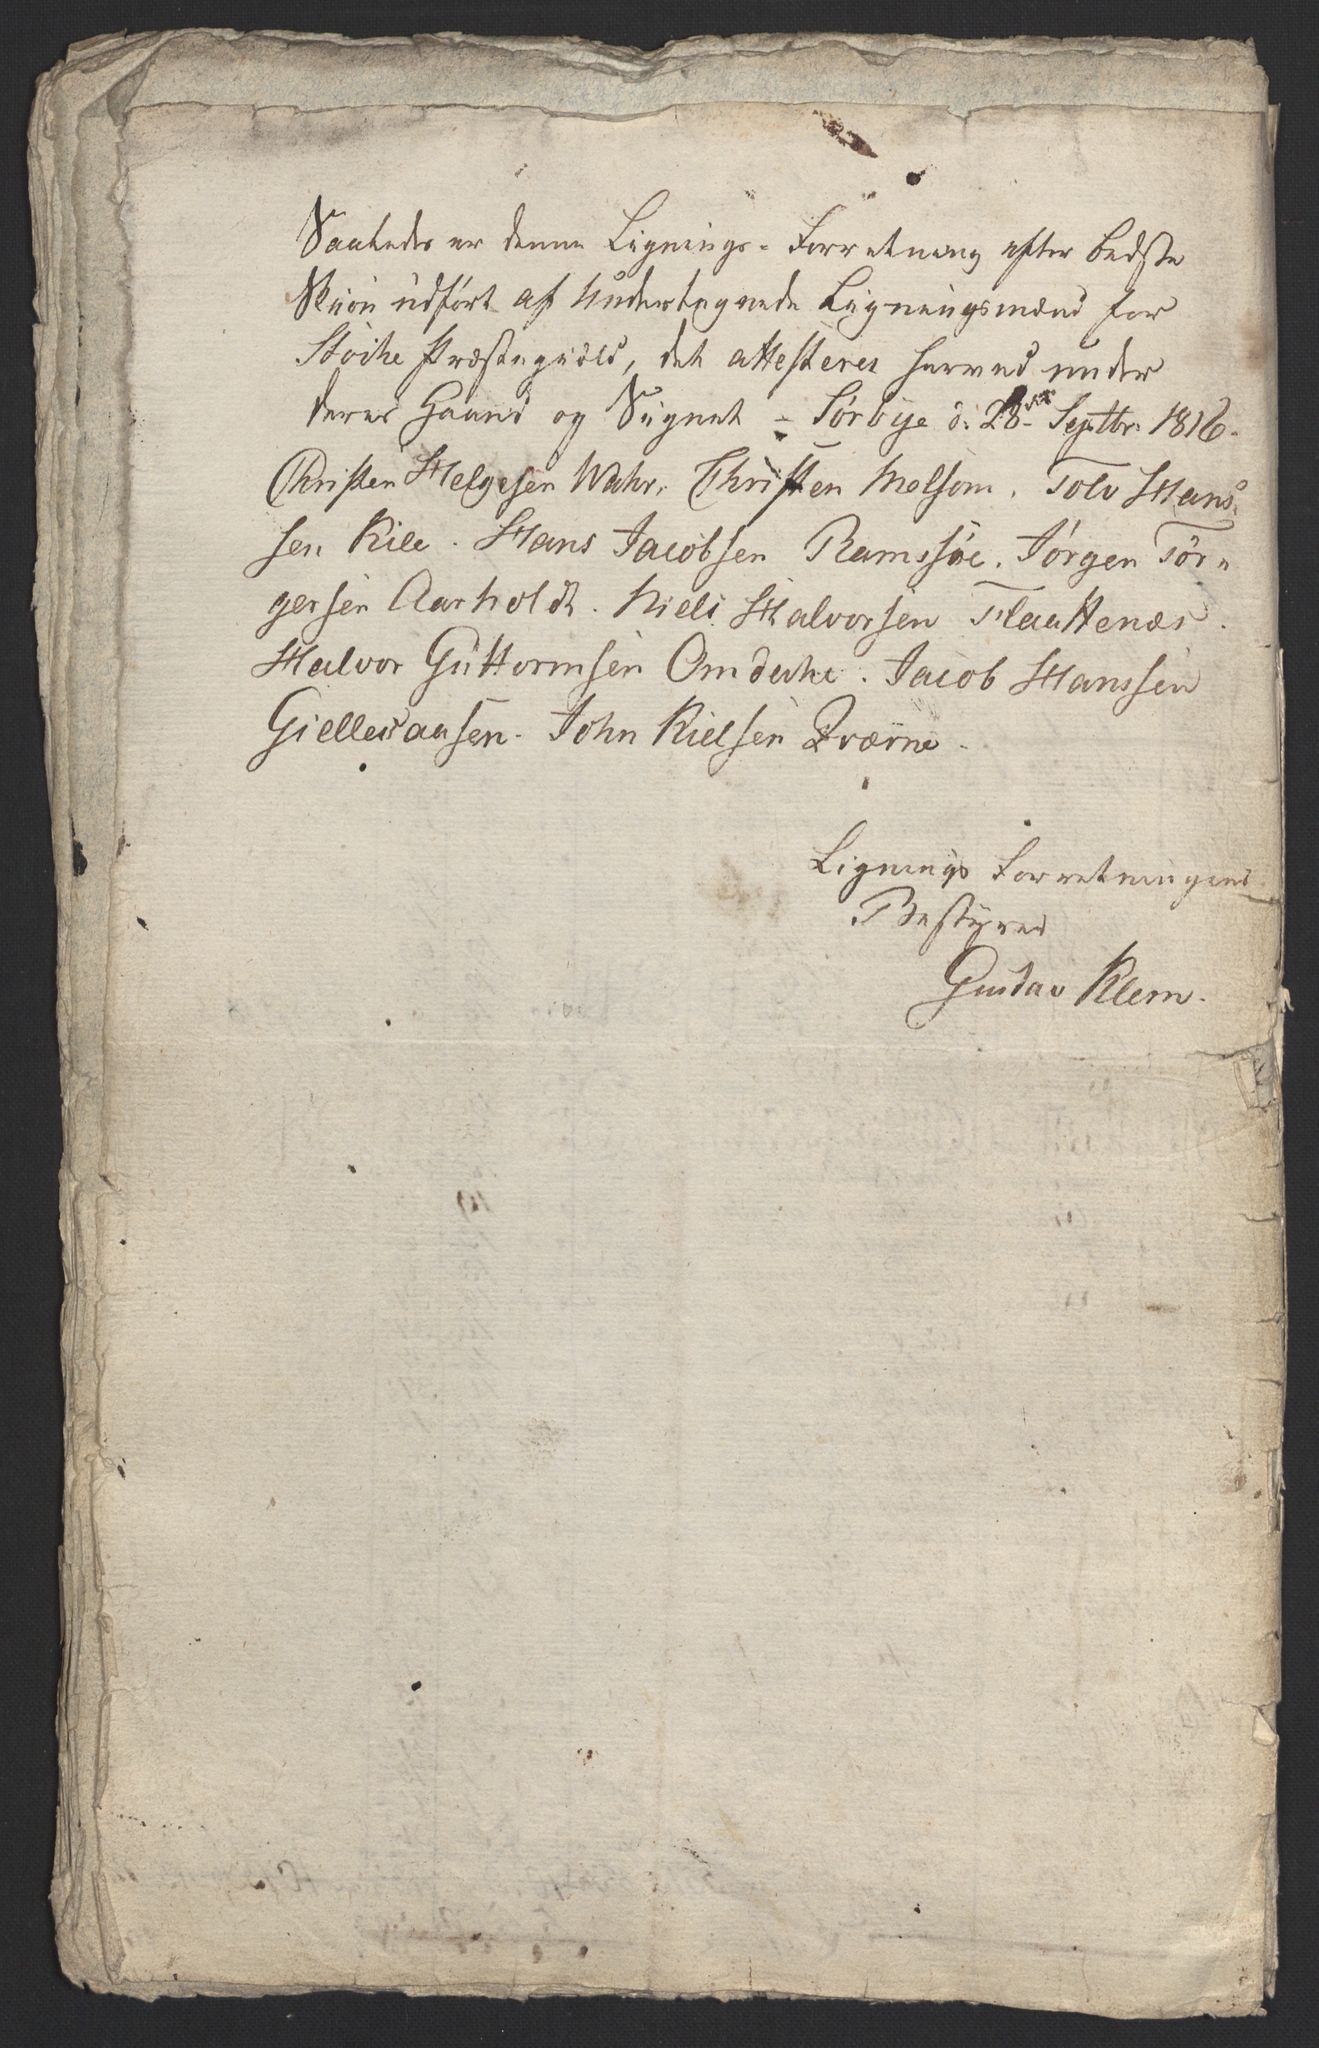 Saaledes er denne Lignings-Forretning efter bedste
Skiøn udført af Undertegnede Ligningsmænd for
Stoche Præstegiæld, det attesteres herved under
deres Haand og Signet = Sørbye d: 28de Septbr. 1816.
Christen Helgesen Wahr. Christen Melsom. Tolv Hans-
sen Kile. Hans Jacobsen Ramssøe. Jørgen Jør-
gersen Aarholdt. Niels Halvorsen Flaattenæs.
Halvor Guttormsen Omdahl. Jacob Hanssen
Giellesaasen. John Nielsen Qværne.
Lignings Forretningens
Bestyrer
Gustav Klem.